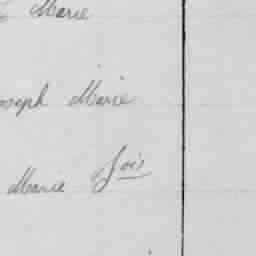 Marie
oseph Marie
Marie